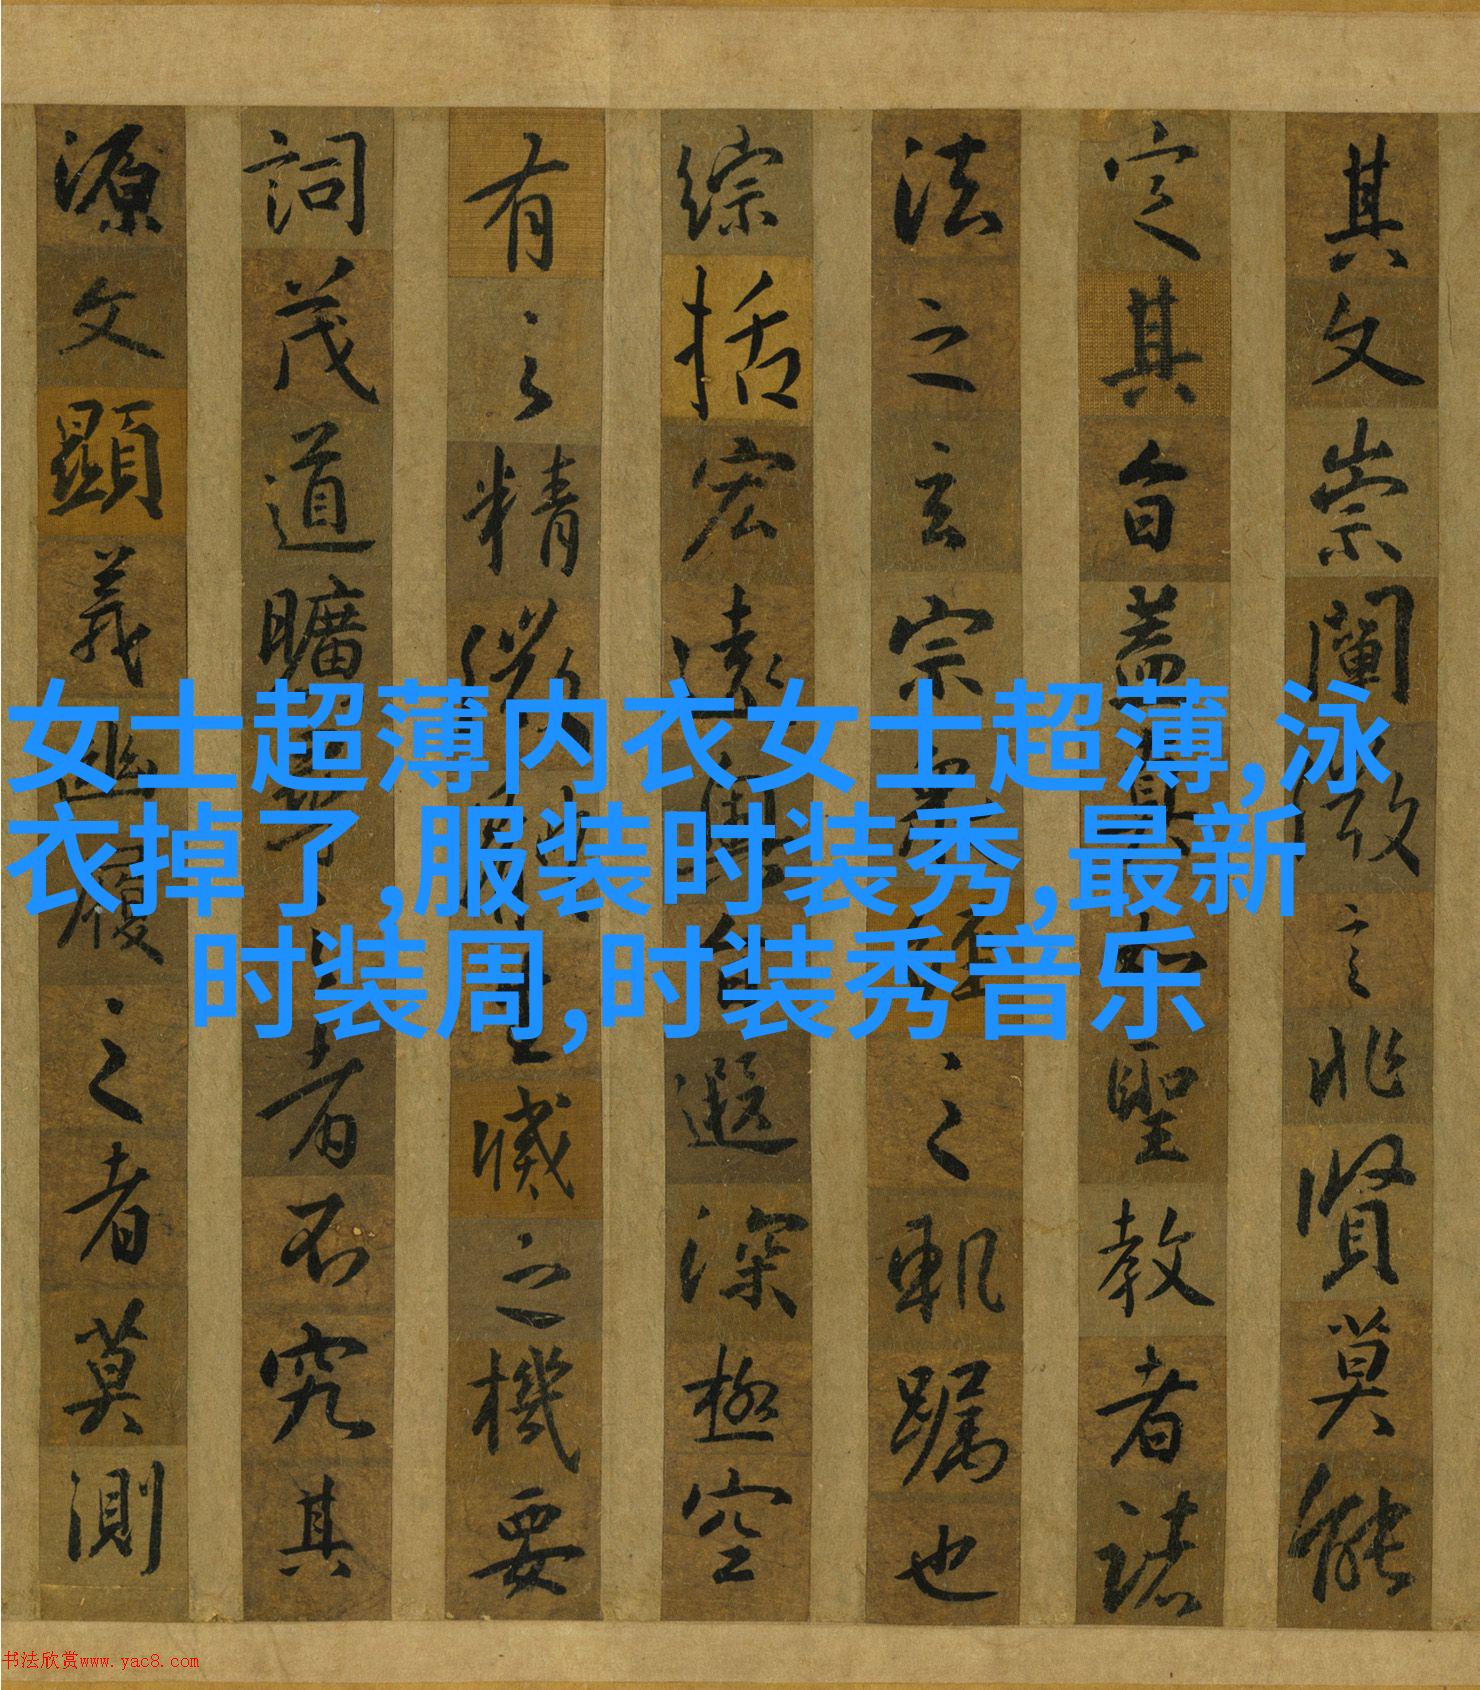 其文崇闡微言非賢莫能
定其旨蓋真如聖教者諸
法之玄宗眾經之軌躅也
綜括宏遠奧旨遐深極空
有之精微體生滅之機要
詞茂道曠尋之者不究其
源文顯義幽履之者莫測
女士超薄内衣女士超薄,泳
衣掉了,服装时装秀,最新
时装周,时装秀音乐
书法欣赏www.yac8.com